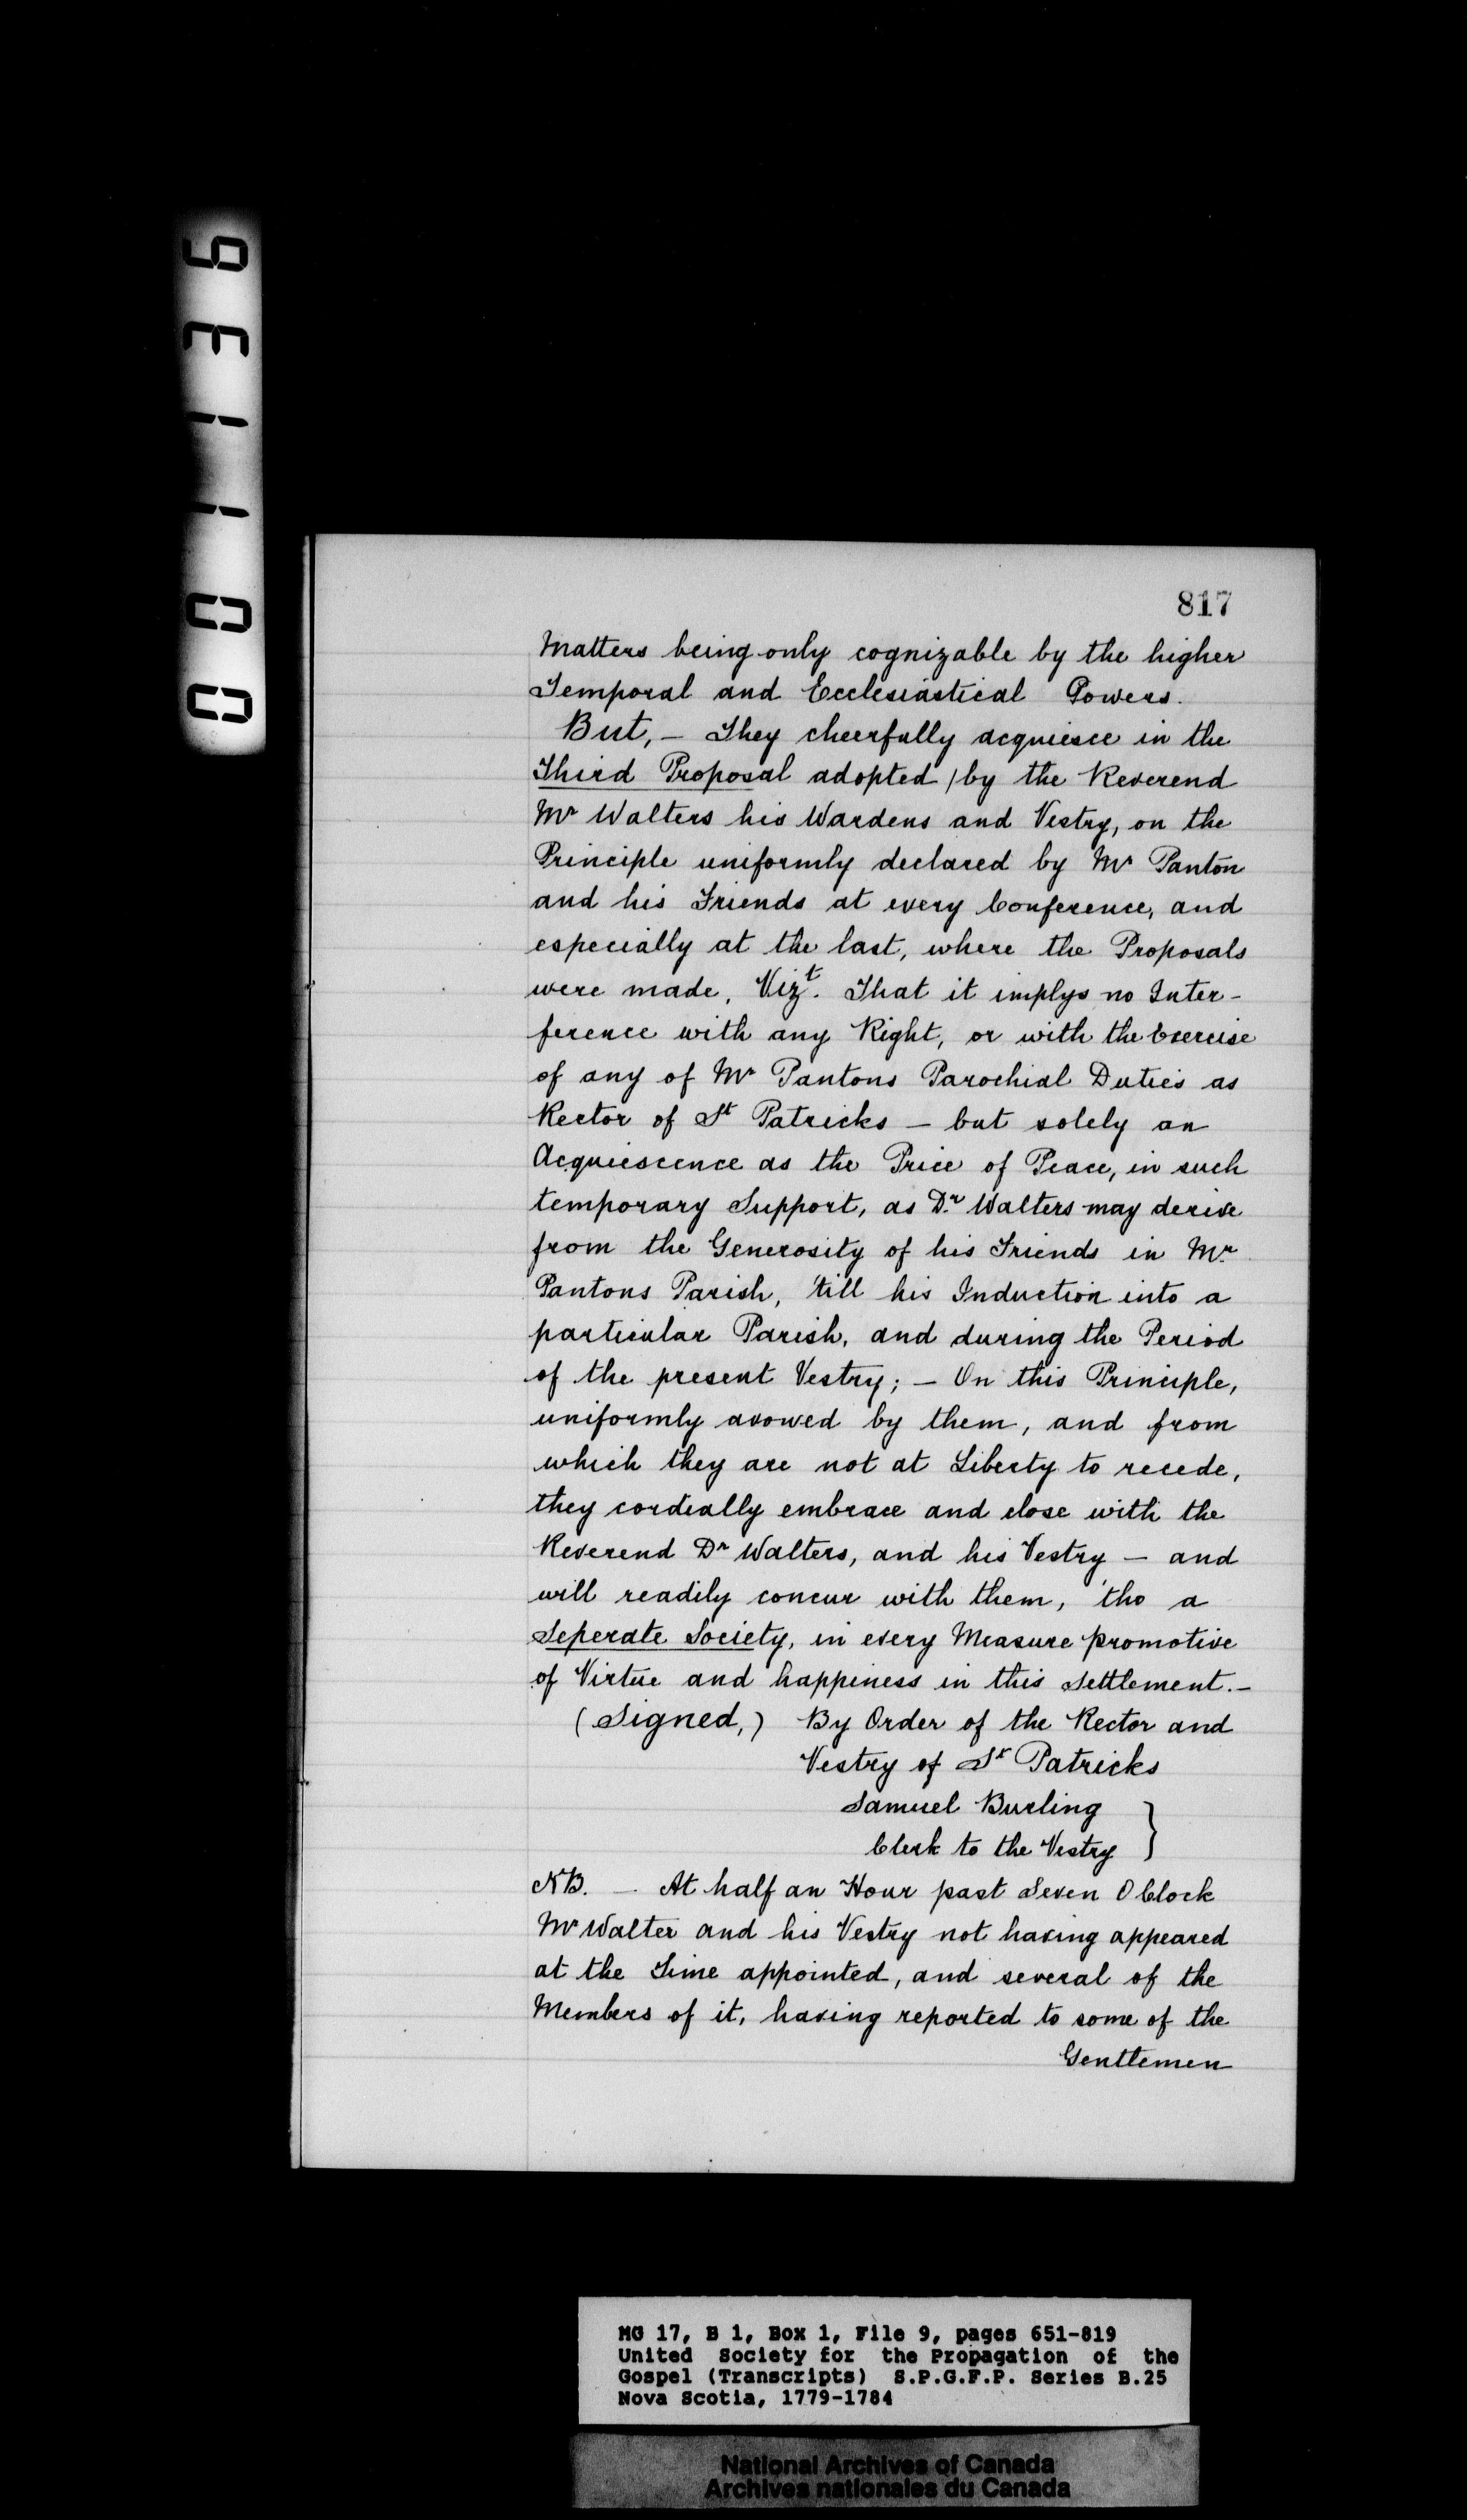 001136
817
Matters being only cognizable by the higher
Temporal and Ecclesiastical Powers.
But, – They cheerfully acquiesce in the
Third Proposal adopted / by the Reverend
Mr Walters his Wardens and Vestry, on the
Principle uniformly declared by Mr Panton
and his Friends at every Conference, and
especially at the last, where the Proposals
were made, Vizt. That it implys no Inter-
ference with any Right, or with the Exercise
of any of Mr Pantons Parochial Duties as
Rector of St Patricks – but solely an
Acquiescence as the Price of Peace, in such
temporary Support, as Dr. Walters may derive
from the Generosity of his Friends in Mr.
Pantons Parish, 'till his Induction into a
particular Parish, and during the Period
of the present Vestry; – On this Principle,
uniformly avowed by them, and from
which they are not at Liberty to recede,
they cordially embrace and close with the
Reverend Dr Walters, and his Vestry – and
will readily concur with them, 'tho a
Seperate Society, in every Measure promotive
of Virtue and happiness in this Settlement. –
(Signed,) By Order of the Rector and
Vestry of St Patricks
Samuel Burling
Clerk to the Vestry }
NB. – At half an Hour past Seven O Clock
Mr Walter and his Vestry not having appeared
at the Time appointed, and several of the
Members of it, having reported to some of the
Gentlemen
MG 17, B 1, Box 1, File 9, pages 651-819
United Society for the Propagation of the
Gospel (Transcripts) S.P.G.F.P. Series B.25
Nova Scotia, 1779-1784
National Archives of Canada
Archives nationales du Canada